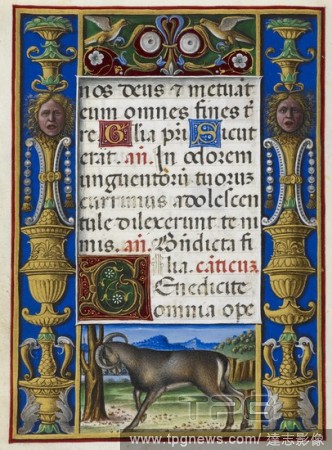 nos deus ⁊ metuāt
eum omnes fines t̄
re Glia pri Sicut
erat. añ. In odorem
unguentorū tuorūz
currimus adolescen
tule dilexerunt te ni
mis. añ. Bn̄dicta fi
lia. cāticuz
Benedicite
omnia ope
TPG
www.tpgnews.com / 達志影像